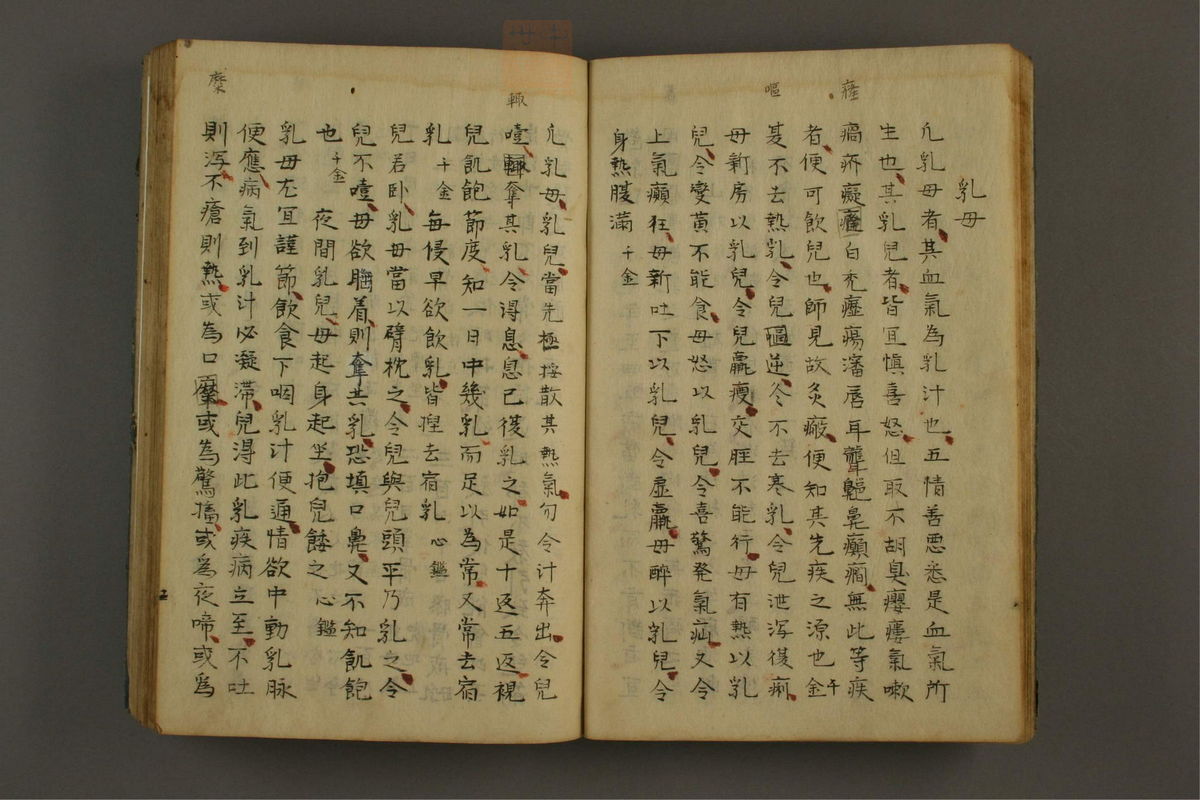 癨
嘔
乳母
凢乳母者其血氣為乳汁也五情善悪悉是血氣所
生也其乳兒者皆冝慎喜怒但取不胡臭癭瘻氣嗽
瘑疥癡癨白禿癧瘍瀋唇耳聾齆鼻癲癇無此等疾
者便可飲兒也師見故灸瘢便知其先疾之源也千金
夏不去熱乳令兒嘔逆冬不去寒乳令兒泄瀉後痢
母新房以乳兒令兒羸瘦交脛不能行母有熱以乳
兒令變黄不能食母怒以乳兒令喜驚発氣疝又令
上氣癲狂母新吐下以乳兒令虚羸母醉以乳兒令
身熱腹滿 千金
輙
糜
凢乳母乳兒當先極挼散其熱氣勿令汁奔出令兒
噎輙奪其乳令得息息已復乳之如是十返五返視
兒飢飽節度知一日中幾乳而足以為常又常去宿
乳 千金 毎侵早欲飲乳皆捏去宿乳 心鑑
兒若卧乳母當以臂枕之令兒與兒頭平乃乳之令
兒不噎母欲睡着則奪其乳恐填口鼻又不知飢飽
也 千金 夜間乳兒母起身起坐抱兒餧之 心鑑
乳母尤冝謹節飲食下咽乳汁便通情欲中動乳脉
便應病氣到乳汁必凝滞兒得此乳疾病立至不吐
則瀉不瘡則熱或為口糜或為驚搐或為夜啼或為